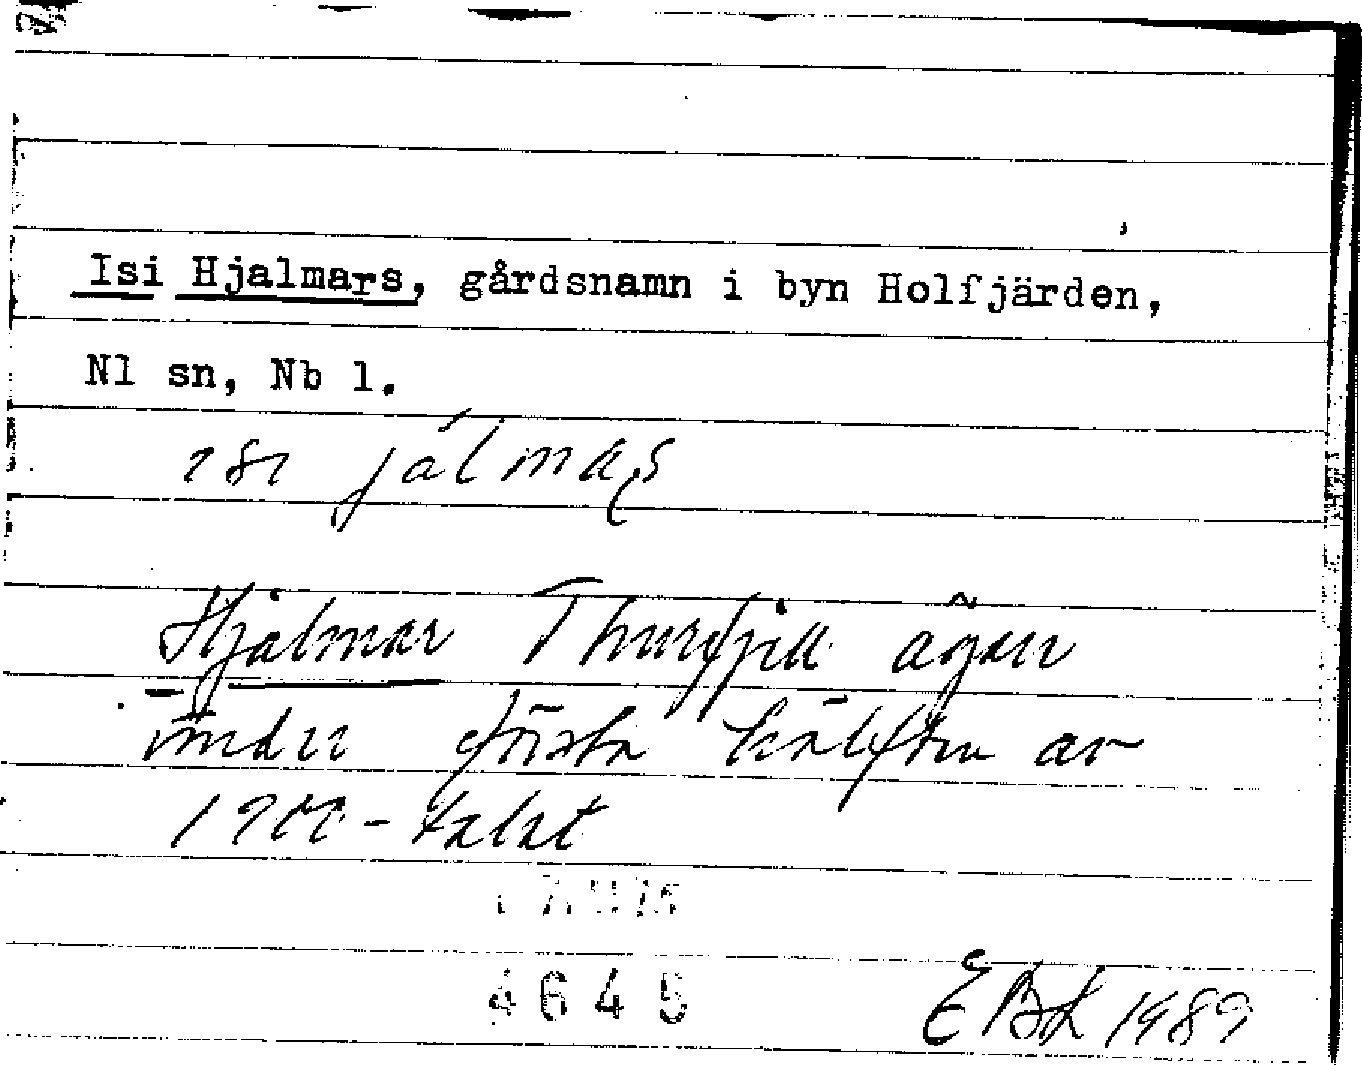 Isi Hjalmars, gårdsnamn i byn Holfjärden,
Nl sn, Nb l.
ısı jálmaʂ
Hjalmar Thurfjell ägare
under första hälften av
1900-talet
4645
EBL 1989